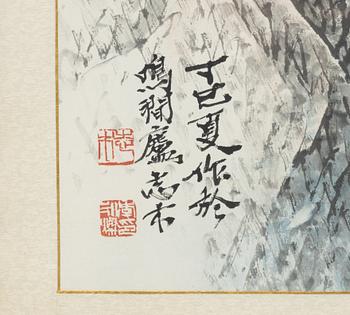 丁巳夏作於
鳴澗廬志木